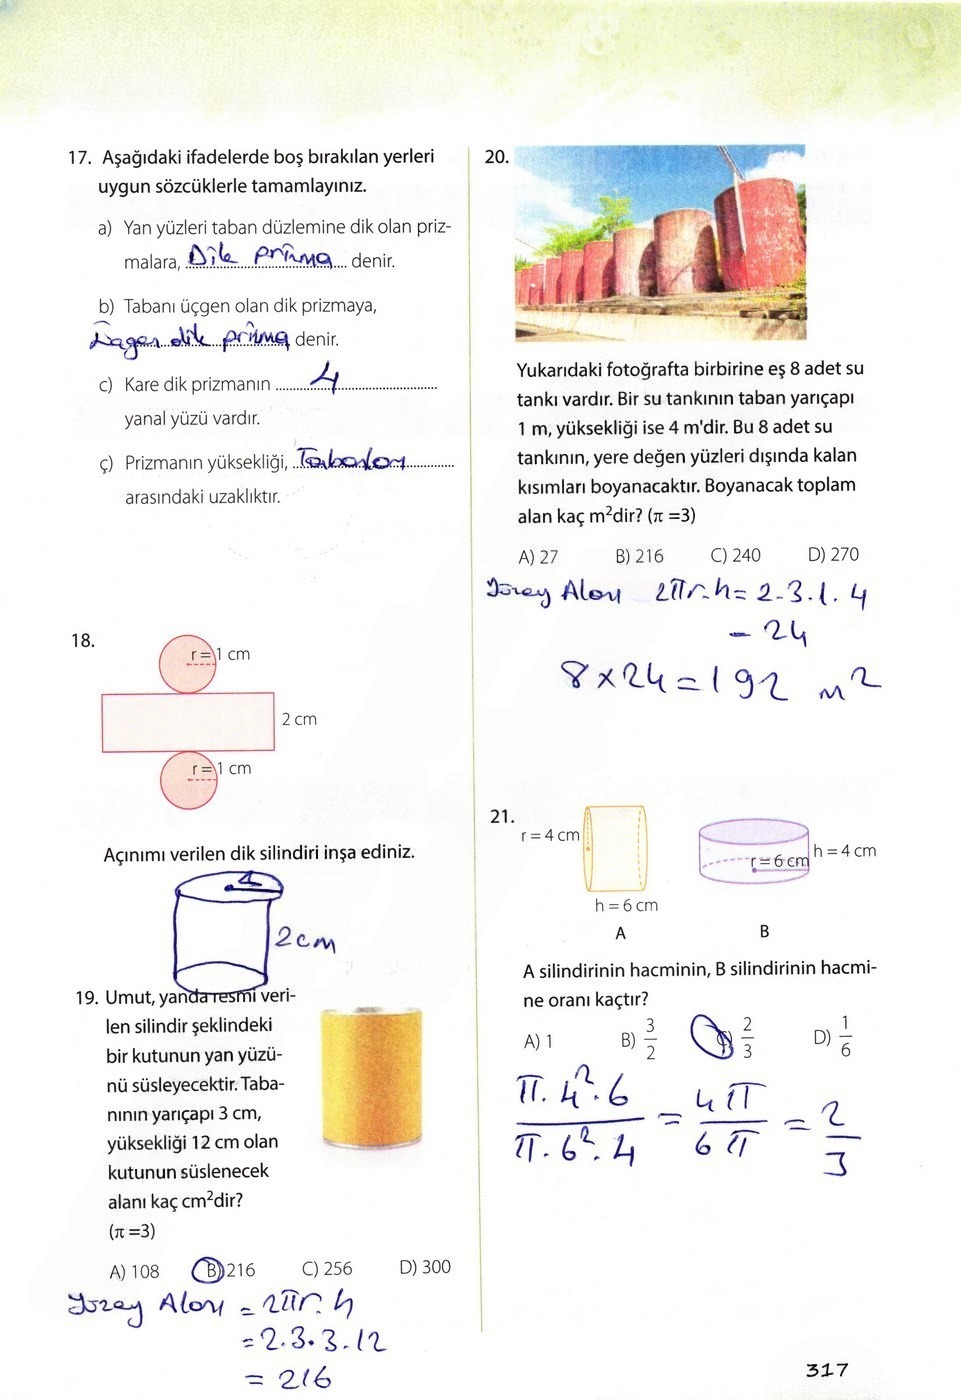 17. Aşağıdaki ifadelerde boş bırakılan yerleri
uygun sözcüklerle tamamlayınız.
a) Yan yüzleri taban düzlemine dik olan priz-
malara, Dik prizma denir.
b) Tabanı üçgen olan dik prizmaya,
Üçgen dik prizma denir.
c) Kare dik prizmanın 4
yanal yüzü vardır.
ç) Prizmanın yüksekliği, Tabanları
arasındaki uzaklıktır.
18.
r = 1 cm
2 cm
r = 1 cm
Açınımı verilen dik silindiri inşa ediniz.
1
2cm
19. Umut, yanda resmi veri-
len silindir şeklindeki
bir kutunun yan yüzü-
nü süsleyecektir. Taba-
nının yarıçapı 3 cm,
yüksekliği 12 cm olan
kutunun süslenecek
alanı kaç cm²dir?
(π =3)
A) 108 B) 216 C) 256 D) 300
Yüzey Alanı = 2πr.h
= 2.3.3.12
= 216
20.
Yukarıdaki fotoğrafta birbirine eş 8 adet su
tankı vardır. Bir su tankının taban yarıçapı
1 m, yüksekliği ise 4 m'dir. Bu 8 adet su
tankının, yere değen yüzleri dışında kalan
kısımları boyanacaktır. Boyanacak toplam
alan kaç m²dir? (π =3)
A) 27 B) 216 C) 240 D) 270
Yüzey Alanı 2πr.h= 2.3.1.4
= 24
8x24=192 m²
21.
r = 4 cm
h = 6 cm
A
r = 6 cm
h = 4 cm
B
A silindirinin hacminin, B silindirinin hacmi-
ne oranı kaçtır?
A) 1 B) 3/2 C) 2/3 D) 1/6
π.4².6 / π.6².4 = 4π / 6π = 2/3
317